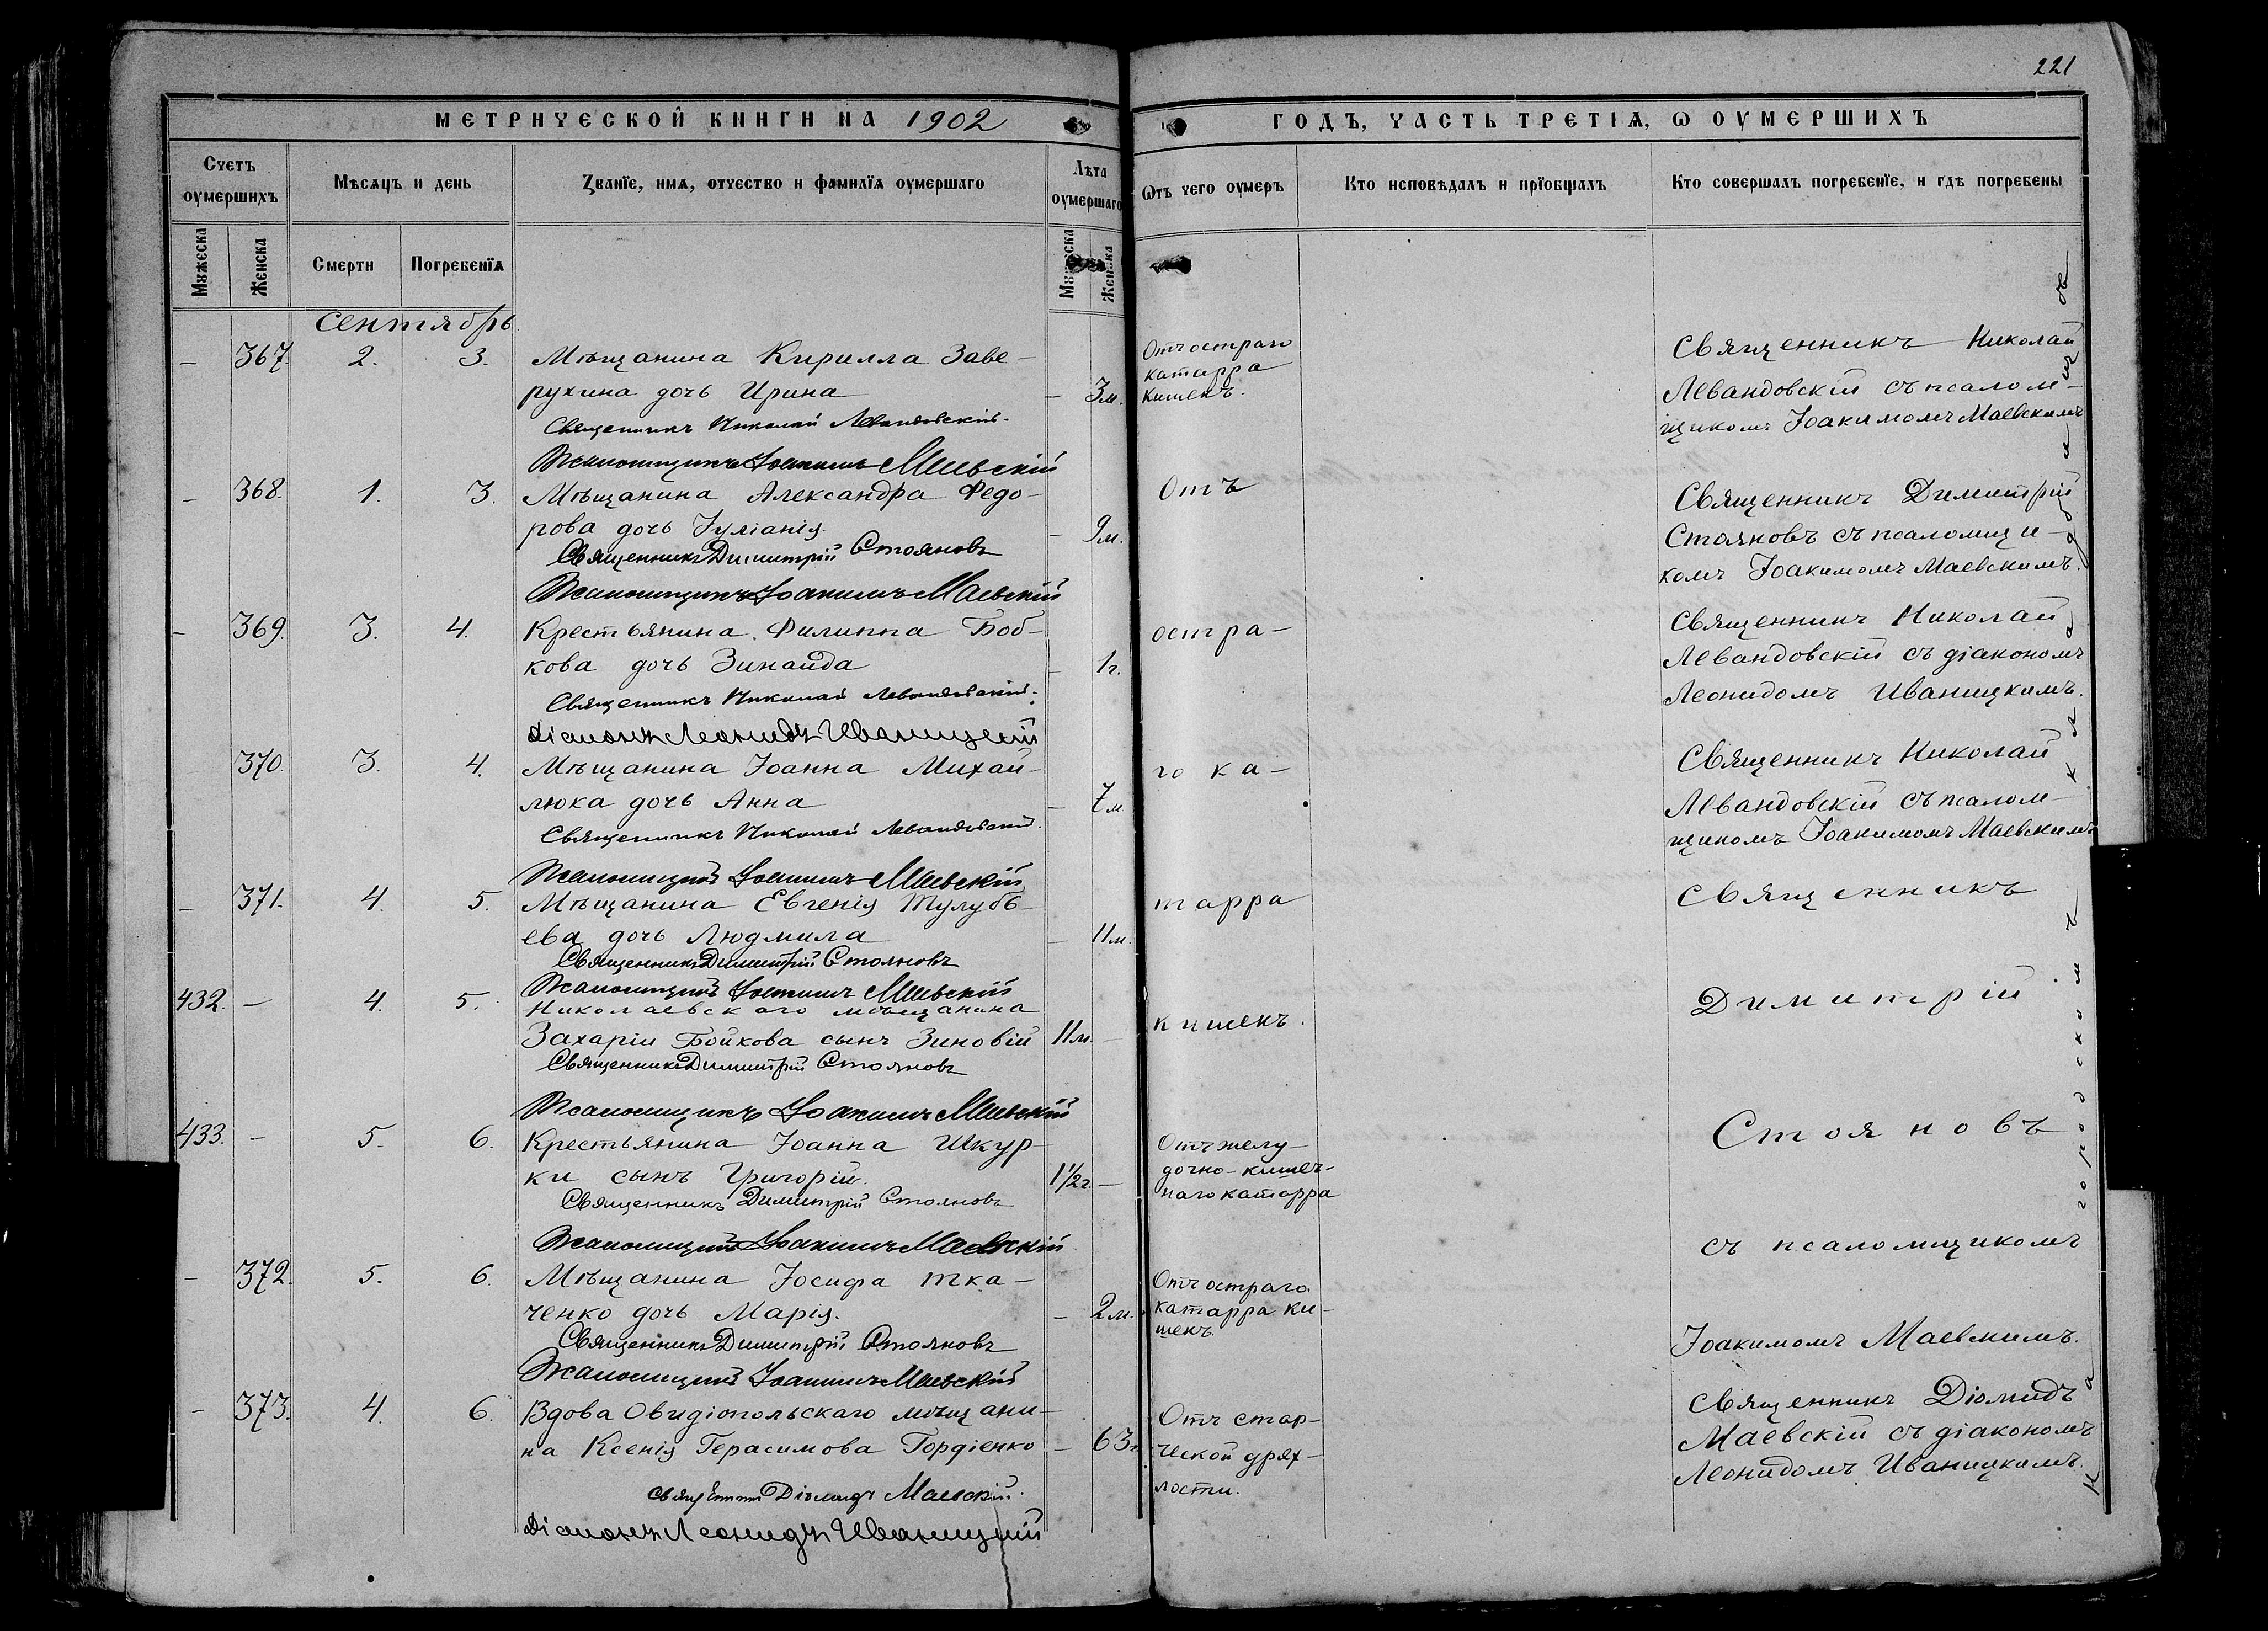 221
МЕТРИЧЕСКОЙ КНИГИ НА 1902
ГОДЪ, ЧАСТЬ ТРЕТІѦ, Ѡ ОУМЕРШИХЪ
Счетъ оумершихъ
Мѣсѧцъ и день
Званїе, имѧ, отчество и фамилїѧ оумершаго
Лѣта оумершаго
Ѿтъ чего оумеръ
Кто исповѣдалъ и прїобщалъ
Кто совершалъ погребенїе, и гдѣ погребены
Мужеска
Женска
Смерти
Погребенїѧ
Мужеска
Женска
Сентябрь.
— 367. 2. 3. Мѣщанина Кирилла Заве-
рухина дочь Ирина — 3м.
Священникъ Николай Левандовскій.
Псаломщикъ Іоакимъ Маевскій
Отъ остраго
катарра
кишекъ.
Священникъ Николай
Левандовскій съ псалом-
щикомъ Іоакимомъ Маевскимъ
— 368. 1. 3. Мѣщанина Александра Федо-
рова дочь Іуліанія. — 9м.
Священникъ Димитрій Стояновъ
Псаломщикъ Іоакимъ Маевскій
Отъ
Священникъ Димитрій
Стояновъ съ псаломщи-
комъ Іоакимомъ Маевскимъ.
— 369. 3. 4. Крестьянина Филиппа Боб-
кова дочь Зинаида — 1г.
Священникъ Николай Левандовскій.
Діаконъ Леонидъ Иваницкій
остра-
Священникъ Николай
Левандовскій съ діакономъ
Леонидомъ Иваницкимъ.
370. 3. 4. Мѣщанина Іоанна Михай-
люка дочь Анна — 7м.
Священникъ Николай Левандовскій.
Псаломщикъ Іоакимъ Маевскій
го ка-
Священникъ Николай
Левандовскій съ псалом-
щикомъ Іоакимомъ Маевскимъ
— 371. 4. 5. Мѣщанина Евгенія Тулубь-
ева дочь Людмила — 11м.
Священникъ Димитрій Стояновъ
Псаломщикъ Іоакимъ Маевскій
тарра
Священникъ
432. — 4. 5. Николаевскаго мѣщанина
Захаріи Бойкова сынъ Зиновій 11м. —
Священникъ Димитрій Стояновъ
Псаломщикъ Іоакимъ Маевскій
кишекъ.
Димитрій
433. — 5. 6. Крестьянина Іоанна Шкур-
ки сынъ Григорій. 1½г. —
Священникъ Димитрій Стояновъ
Псаломщикъ Іоакимъ Маевскій
Отъ желу-
дочно-кишеч-
наго катарра
Стояновъ
— 372. 5. 6. Мѣщанина Іосифа Тка-
ченко дочь Марія. — 2м.
Священникъ Димитрій Стояновъ
Псаломщикъ Іоакимъ Маевскій
Отъ остраго
катарра ки-
шекъ.
съ псаломщикомъ
Іоакимомъ Маевскимъ.
— 373. 4. 6. Вдова Овидіопольскаго мѣщани-
на Ксенія Герасимова Гордіенко — 63г.
Священникъ Діомидъ Маевскій.
Діаконъ Леонидъ Иваницкій
Отъ стар-
ческой дрях-
лости.
Священникъ Діомидъ
Маевскій съ діакономъ
Леонидомъ Иваницкимъ.
На городскомъ кладбищѣ